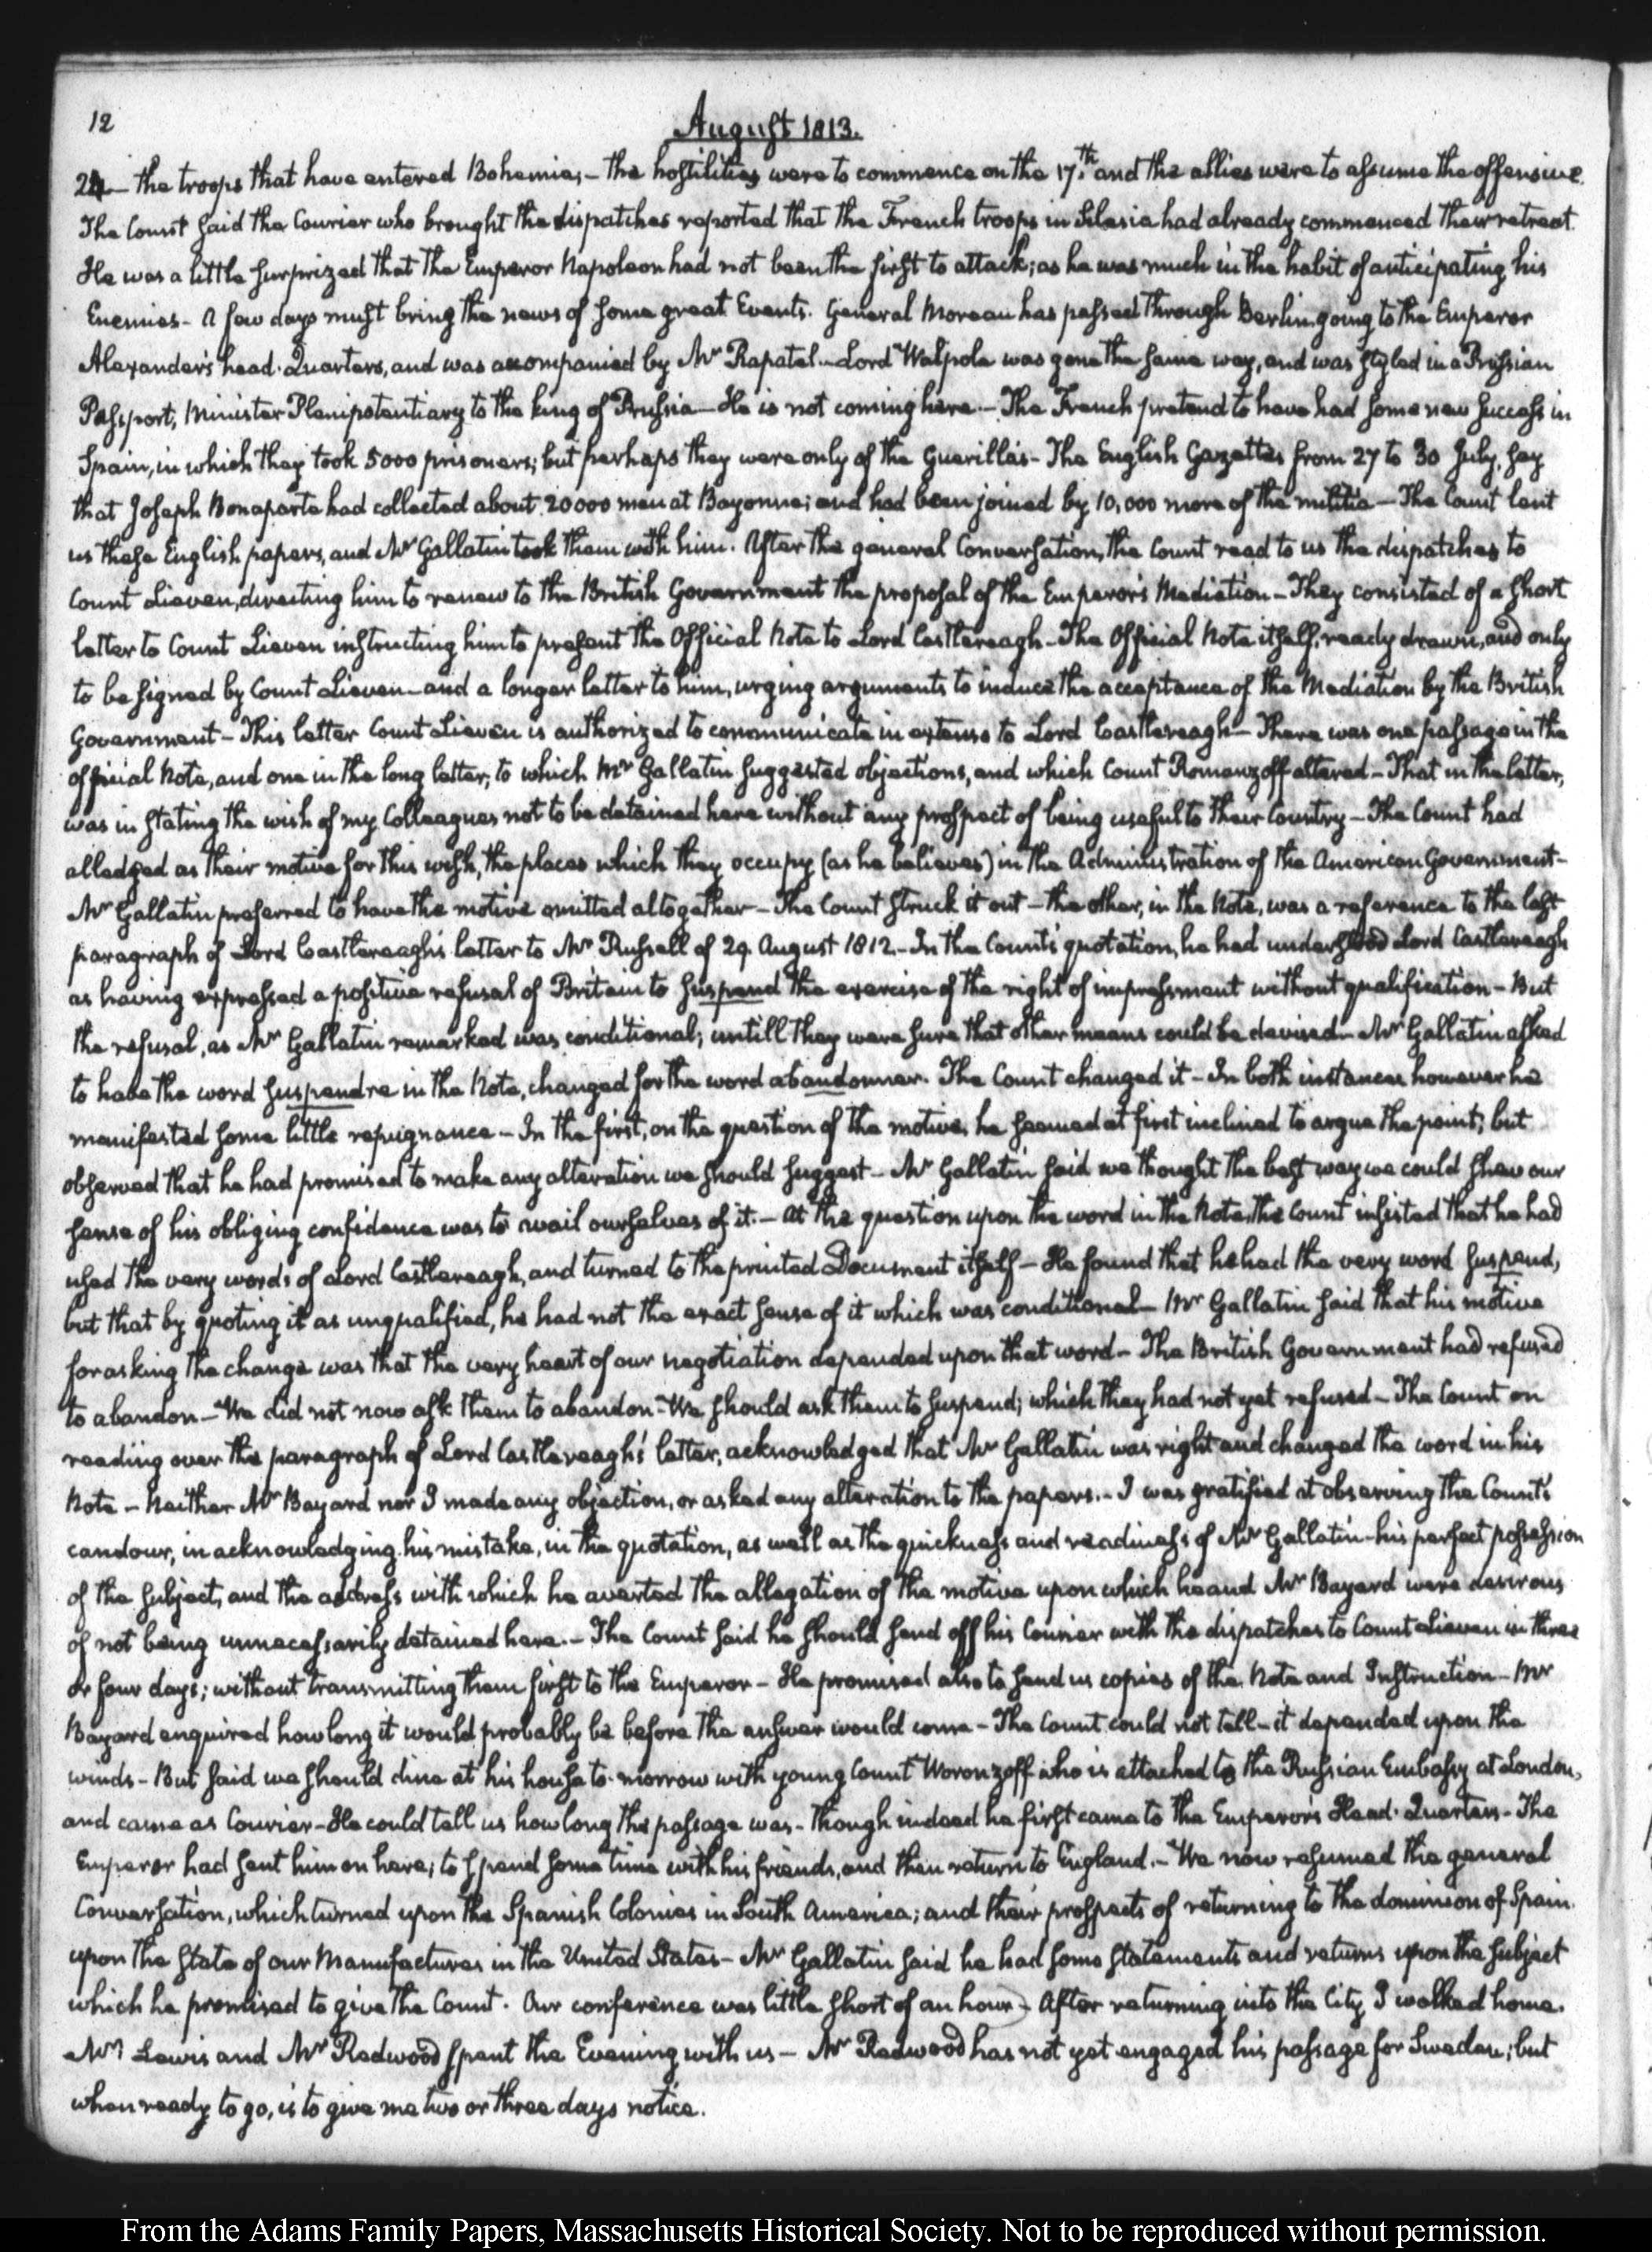 12
August 1813.
24 — the troops that have entered Bohemia; — the hostilities were to commence on the 17.th and the allies were to assume the offensive.
The Count said the Courier who brought the dispatches reported that the French troops in Silesia had already commenced their retreat.
He was a little surprized that the Emperor Napoleon had not been the first to attack; as he was much in the habit of anticipating his
Enemies — A few days must bring the news of some great Events. General Moreau has passed through Berlin going to the Emperor
Alexander's head-Quarters, and was accompanied by Mr Rapatel — Lord Walpole was gone the same way, and was styled in a Prussian
Passport, Minister Plenipotentiary to the king of Prussia — He is not coming here. — The French pretend to have had some new success in
Spain, in which they took 5000 prisoners; but perhaps they were only of the Guerillas — The English Gazettes from 27 to 30 July, say
that Joseph Bonaparte had collected about 20000 men at Bayonne; and had been joined by 10,000 more of the militia — The Count lent
us these English papers, and Mr Gallatin took them with him. After the general Conversation, the Count read to us the dispatches to
Count Lieven, directing him to renew to the British Government the proposal of the Emperor's Mediation — They consisted of a short
letter to Count Lieven instructing him to present the Official Note to Lord Castlereagh — The Official Note itself, ready drawn, and only
to be signed by Count Lieven — and a longer letter to him, urging arguments to induce the acceptance of the Mediation by the British
Government — This letter Count Lieven is authorized to communicate in extenso to Lord Castlereagh — There was one passage in the
official Note, and one in the long letter, to which Mr Gallatin suggested objections, and which Count Romanzoff altered — That in the letter,
was in stating the wish of my Colleagues not to be detained here without any prospect of being useful to their Country — The Count had
alledged as their motive for this wish, the places which they occupy (as he believes) in the Administration of the American Government —
Mr Gallatin preferred to have the motive omitted altogether — The Count struck it out — the other, in the Note, was a reference to the last
paragraph of Lord Castlereagh's letter to Mr Russell of 29. August 1812. — In the Count's quotation, he had understood Lord Castlereagh
as having expressed a positive refusal of Britain to suspend the exercise of the right of impressment without qualification — But
the refusal, as Mr Gallatin remarked was conditional; untill they were sure that other means could be devised — Mr Gallatin asked
to have the word suspendre in the Note, changed for the word abandonner. The Count changed it — In both instances however he
manifested some little repugnance — In the first, on the question of the motive, he seemed at first inclined to argue the point; but
observed that he had promised to make any alteration we should suggest — Mr Gallatin said we thought the best way we could shew our
sense of his obliging confidence was to avail ourselves of it. — At the question upon the word in the Note, the Count insisted that he had
used the very words of Lord Castlereagh, and turned to the printed Document itself — He found that he had the very word suspend,
but that by quoting it as unqualified, he had not the exact sense of it which was conditional — Mr Gallatin said that his motive
for asking the change was that the very heart of our negotiation depended upon that word — The British Government had refused
to abandon — We did not now ask them to abandon — We should ask them to suspend; which they had not yet refused — The Count on
reading over the paragraph of Lord Castlereagh's letter, acknowledged that Mr Gallatin was right and changed the word in his
Note — Neither Mr Bayard nor I made any objection, or asked any alteration to the papers. — I was gratified at observing the Count's
candour, in acknowledging his mistake, in the quotation, as well as the quickness and readiness of Mr Gallatin — his perfect possession
of the subject, and the address with which he averted the allegation of the motive upon which he and Mr Bayard were desirous
of not being unnecessarily detained here. — The Count said he should send off his Courier with the dispatches to Count Lieven in three
or four days; without transmitting them first to the Emperor — He promised also to send us copies of the Note and Instruction — Mr
Bayard enquired how long it would probably be before the answer would come — The Count could not tell — it depended upon the
winds — But said we should dine at his house to-morrow with young Count Woronzoff who is attached to the Russian Embassy at London,
and came as Courier — He could tell us how long the passage was — though indeed he first came to the Emperor's Head-Quarters — The
Emperor had sent him on here; to spend some time with his friends, and then return to England. — We now resumed the general
Conversation, which turned upon the Spanish Colonies in South America; and their prospects of returning to the dominion of Spain.
upon the state of our Manufactures in the United States — Mr Gallatin said he had some statements and returns upon the subject
which he promised to give the Count. Our conference was little short of an hour — After returning into the City I walked home.
Mr Lewis and Mr Redwood spent the Evening with us — Mr Redwood has not yet engaged his passage for Sweden; but
when ready to go, is to give me two or three days notice.
From the Adams Family Papers, Massachusetts Historical Society. Not to be reproduced without permission.